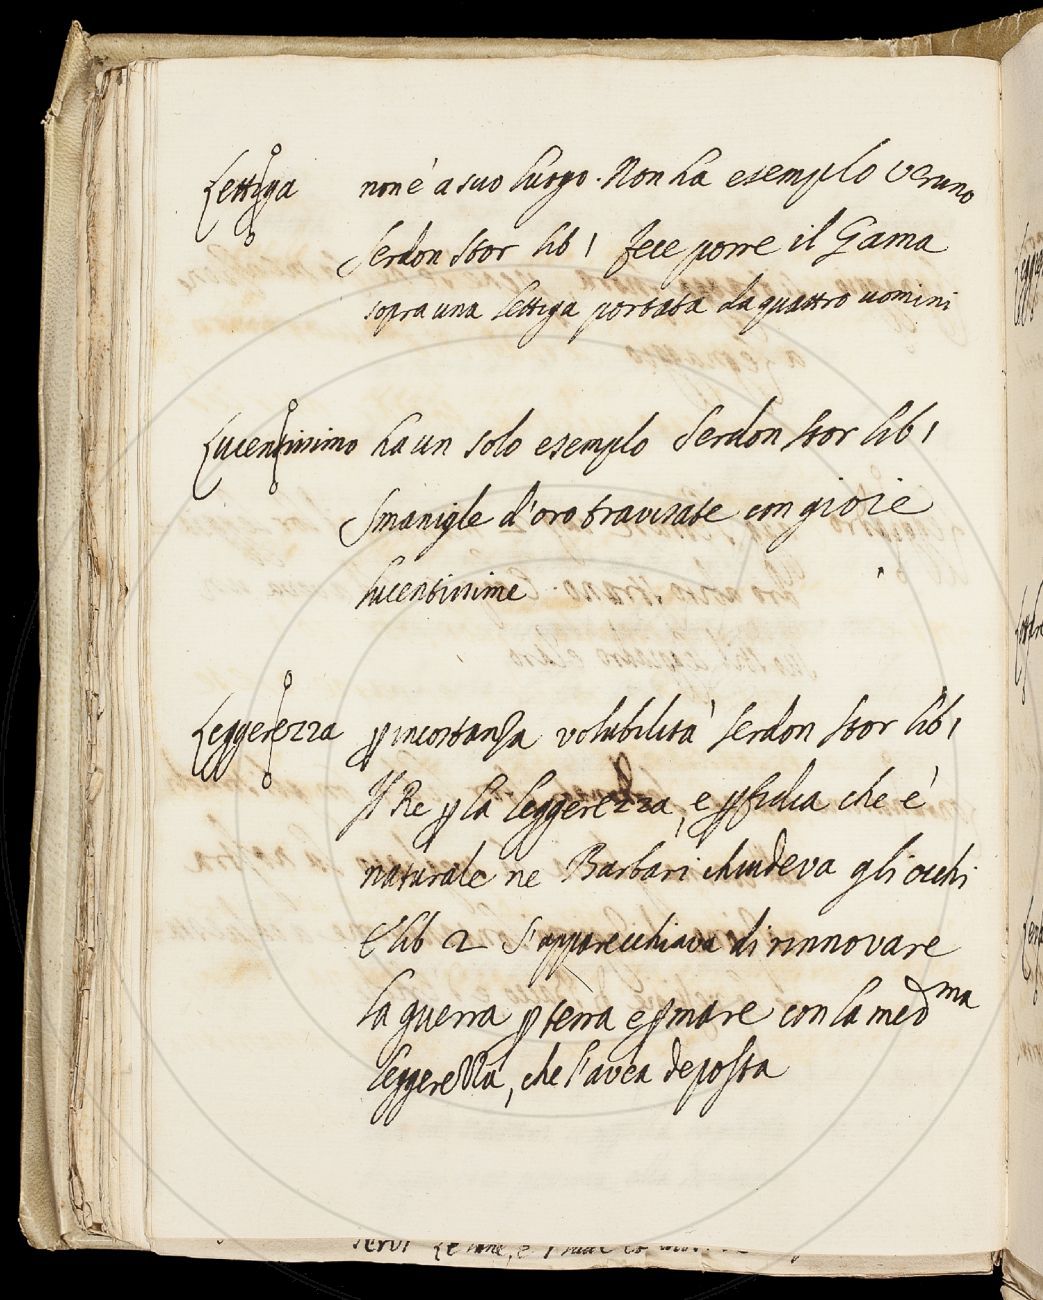 Lettiga non è a suo luogo. Non ha esemplo veruno
Serdon stor lib 1 fece porre il Gama
sopra una lettiga portata da quattro uomini
Lucentissimo ha un solo esemplo Serdon stor lib 1
Smanigle d'oro travisate con gioie
lucentissime
Leggerezza p incostanza volubilità Serdon stor lib 1
Il Re p la leggerezza, e pfidia che è
naturale ne Barbari chiudeva gli occhi
E lib 2 S'apparecchiava di rinnovare
la guerra p terra e p mare con la med ma
leggerezza, che l'avea deposta